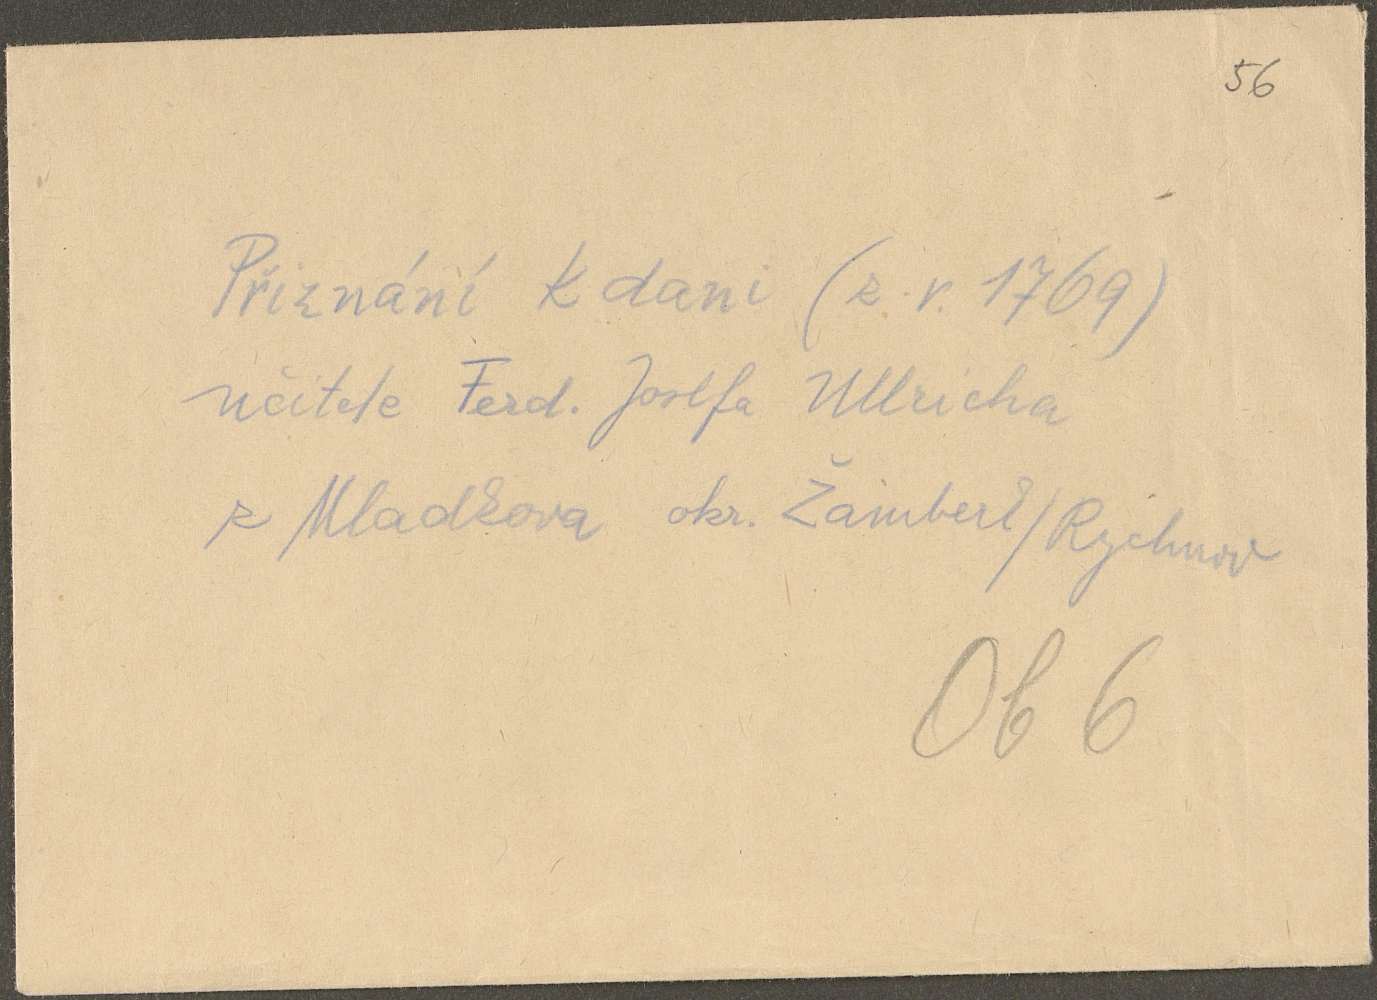 56
Přiznání k dani (z r. 1769)
učitele Ferd. Josefa Ullricha
z Mladkova okr. Žamberk/Rychnov
Ob 6